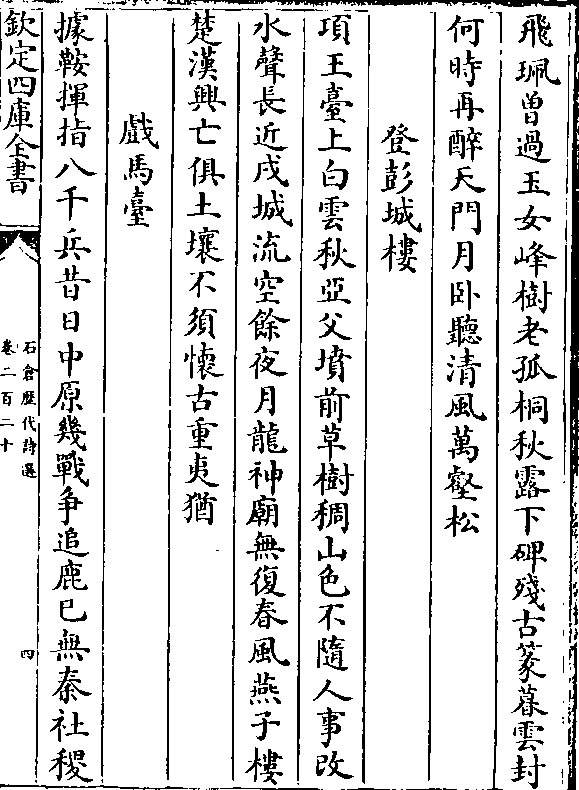 飛珮曾過玉女峰樹老孤桐秋露下碑殘古篆暮雲封
何時再醉天門月卧聽清風萬壑松
登彭城樓
項王臺上白雲秋亞父墳前草樹稠山色不隨人事改
水聲長近戍城流空餘夜月龍神廟無復春風燕子樓
楚漢興亡俱土壤不須懷古重夷猶
戲馬臺
據鞍揮指八千兵昔日中原幾戰爭追鹿已無秦社稷
欽定四庫全書
石倉歷代詩選
卷二百二十
四